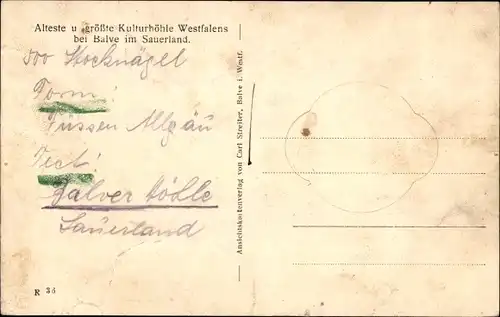 Älteste u. größte Kulturhöhle Westfalens
bei Balve im Sauerland.
500 Stocknägel
Form:
Füssen Allgäu
Text:
Balver Höhle
Sauerland
Ansichtskartenverlag von Carl Streiter, Balve i. Westf.
R 36